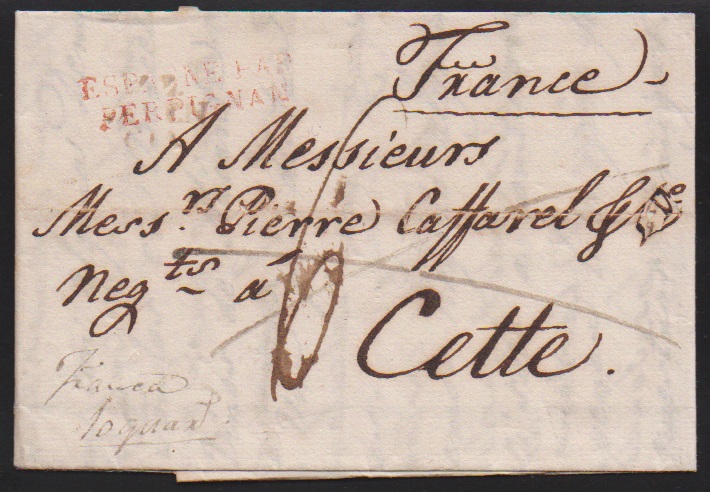 ESPAGNE PAR
PERPIGNAN
France
A Messieurs
Mess.rs Pierre Caffarel &
Neg.ts a
Cette.
Franca